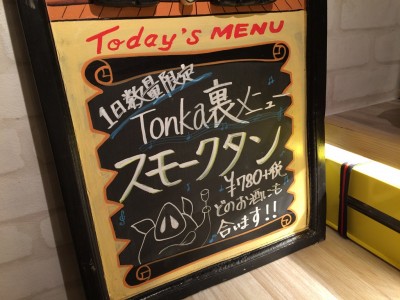 Today's MENU
1日数量限定
Tonka裏メニュー
スモークタン
¥780+税
どのお酒にも
合います!!